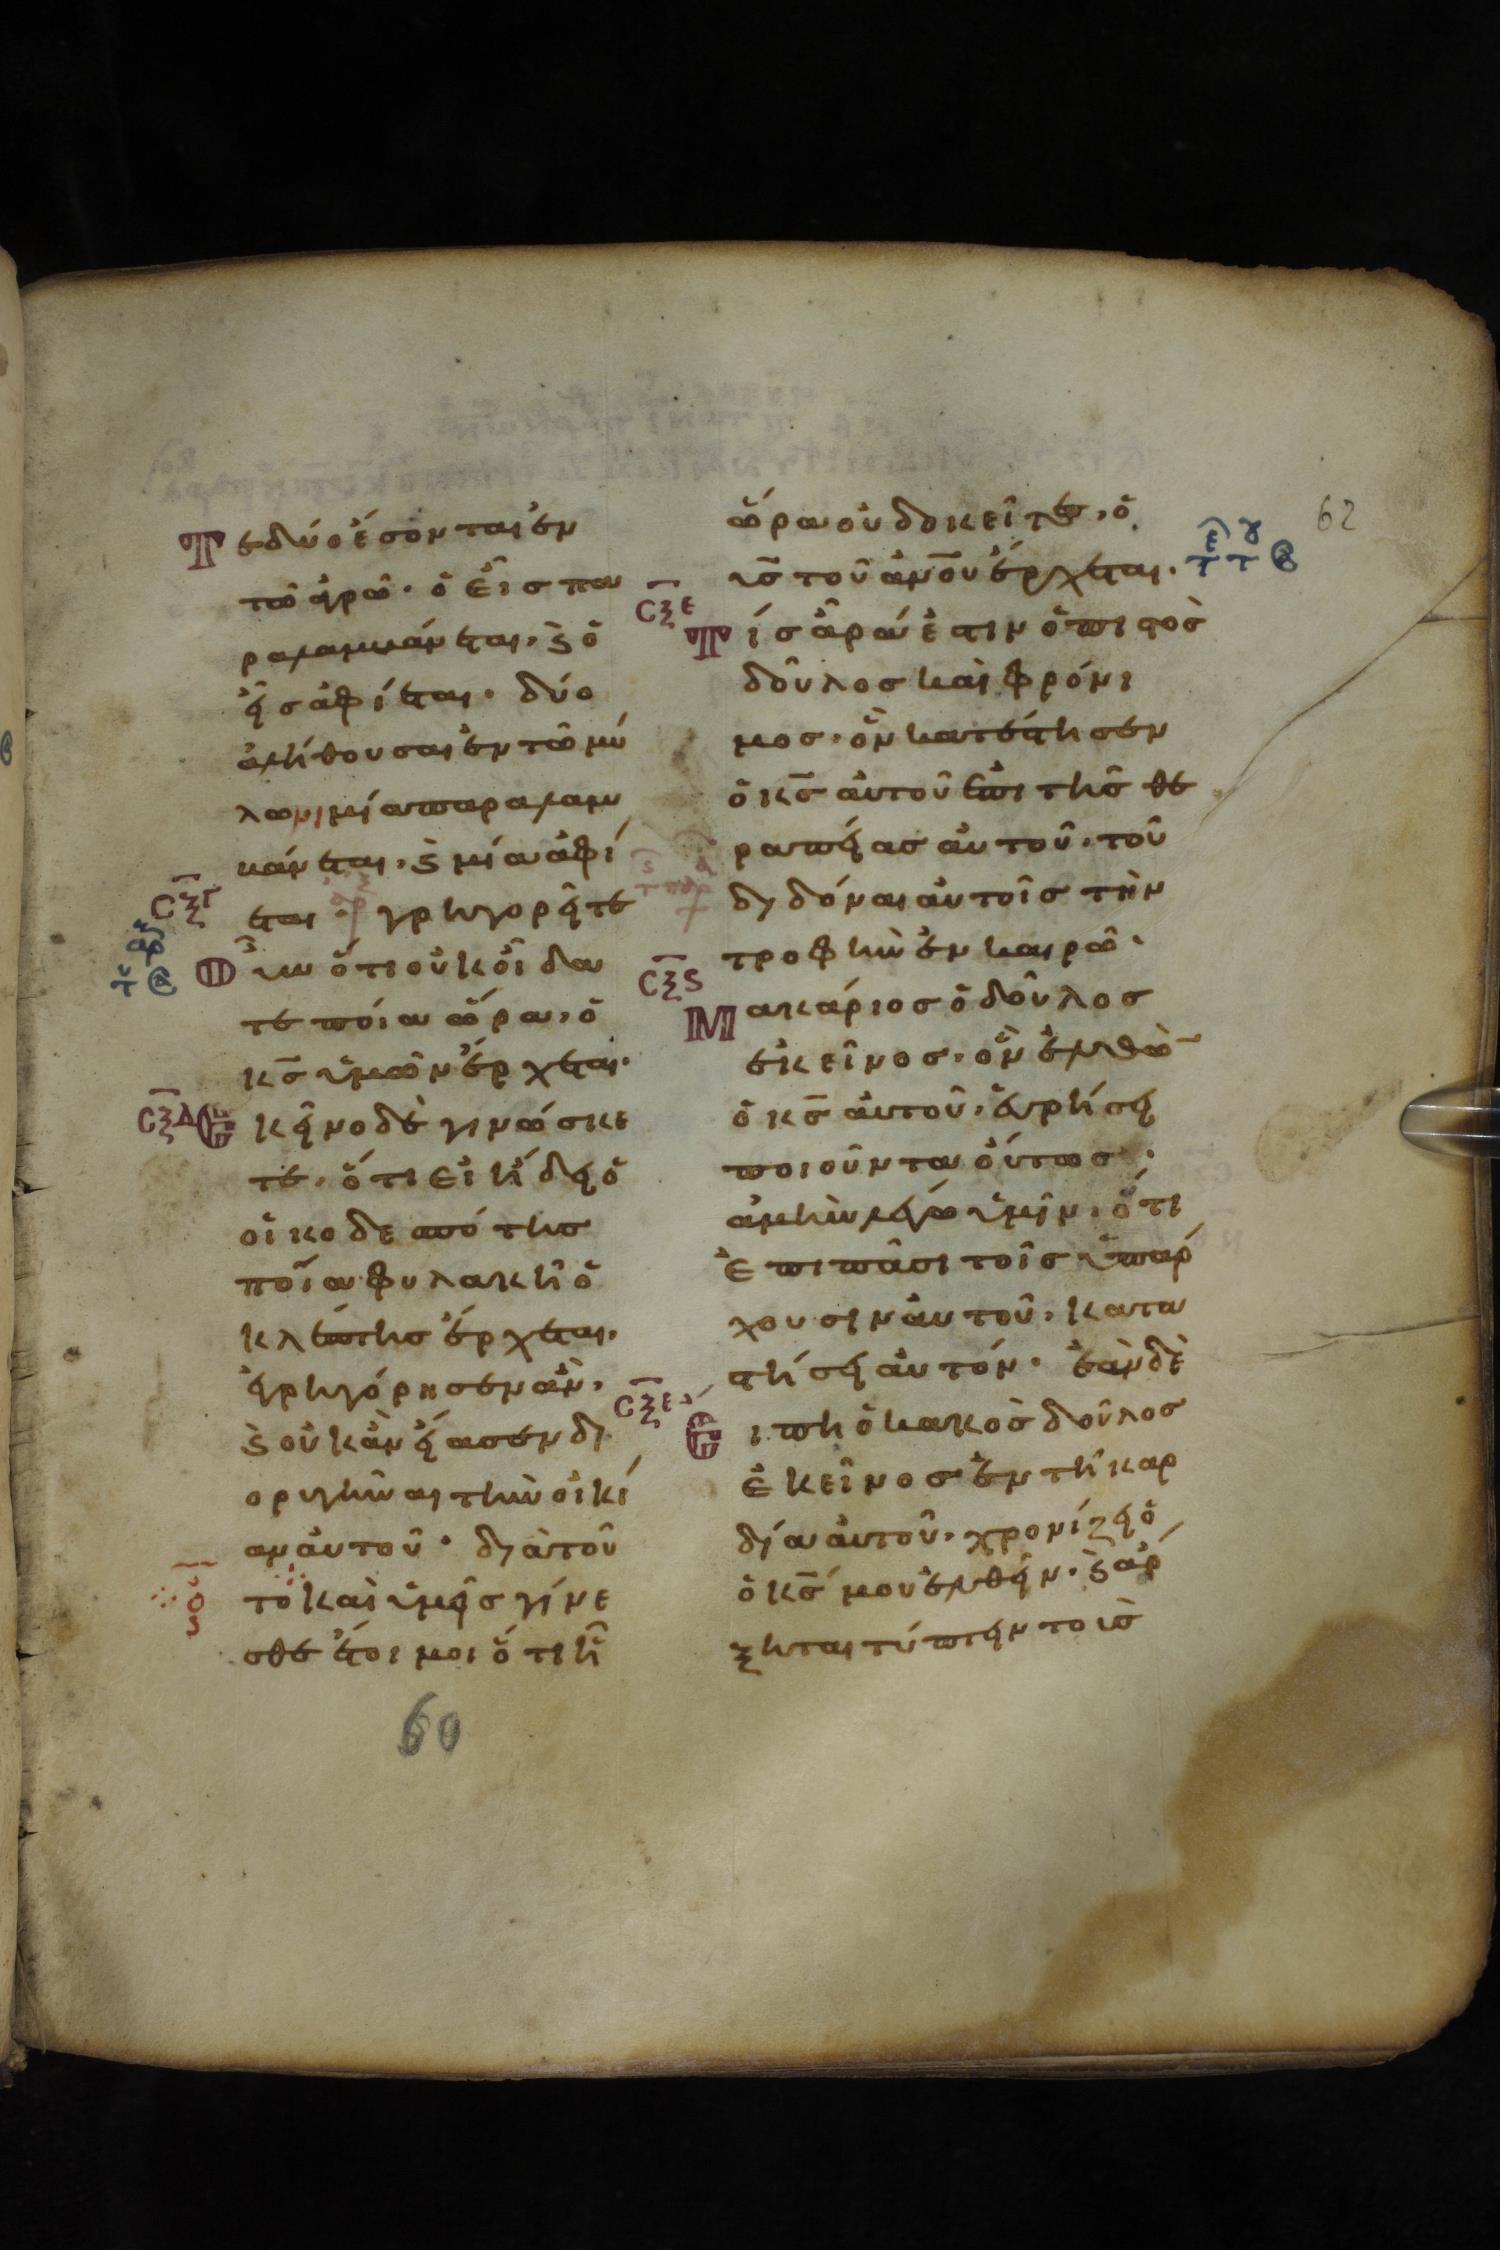 62
Τε δύο ἔσονται ἐν
τῶ ἀγρῶ· ὁ εἷς πα
ραλαμβάνεται, ϗ ὁ
εἷς ἀφίεται· δύο
ἀλήθουσαι ἐν τῶ μύ
λωνι μία παραλαμ
βάνεται, ϗ μία ἀφί
εται· γρηγορεῖτε
οὖν ὅτι οὐκ οἴδα
τε ποία ὥρα, ὁ
κ̅ς̅ ὑμῶν ἔρχεται·
Ἐκεῖνο δὲ γινώσκε
τε, ὅτι εἰ ἤδει ὁ
οἰκοδεσπότης
ποία φυλακῆ ὁ
κλέπτης ἔρχεται,
ἐγρηγόρησεν ἂν,
ϗ οὐκ ἂν εἴασεν δι
ορυγῆναι τὴν οἰκί
αν αὐτοῦ· διὰ τοῦ
το καὶ ὑμεῖς γίνε
σθε ἕτοιμοι ὅτι ἧ
ὥρα οὐ δοκεῖτε, ὁ
υ̅ς̅ τοῦ ἀν̅ο̅υ̅ ἔρχεται·
Τίς ἄρα ἐστιν ὁ πιστὸς
δοῦλος καὶ φρόνι
μος· ὃν κατέστησεν
ὁ κ̅ς̅ αὐτοῦ ἐπι τῆς θε
ραπείας αὐτοῦ, τοῦ
διδόναι αὐτοῖς τὴν
τροφὴν ἐν καιρῶ·
Μακάριος ὁ δοῦλος
ἐκεῖνος, ὃν ἐλθὼ̅
ὁ κ̅ς̅ αὐτοῦ, εὑρήσει
ποιοῦντα οὕτως·
ἀμὴν λέγω ὑμῖν, ὅτι
ἐπι πᾶσι τοῖς ὑπάρ
χουσιν αὐτοῦ, κατα
στήσει αὐτόν· ἐὰν δὲ
Εἰπη ὁ κακὸς δοῦλος
ἐκεῖνος ἐν τῆ καρ
δία αὐτοῦ, χρονίζει ὁ
ὁ κ̅ς̅ μου ἐλθεῖν, ϗ ἄρ
ξηται τύπτειν τοὺς
ϲξγ
ϲξδ
ϲξε
ϲξς
ϲξε
60